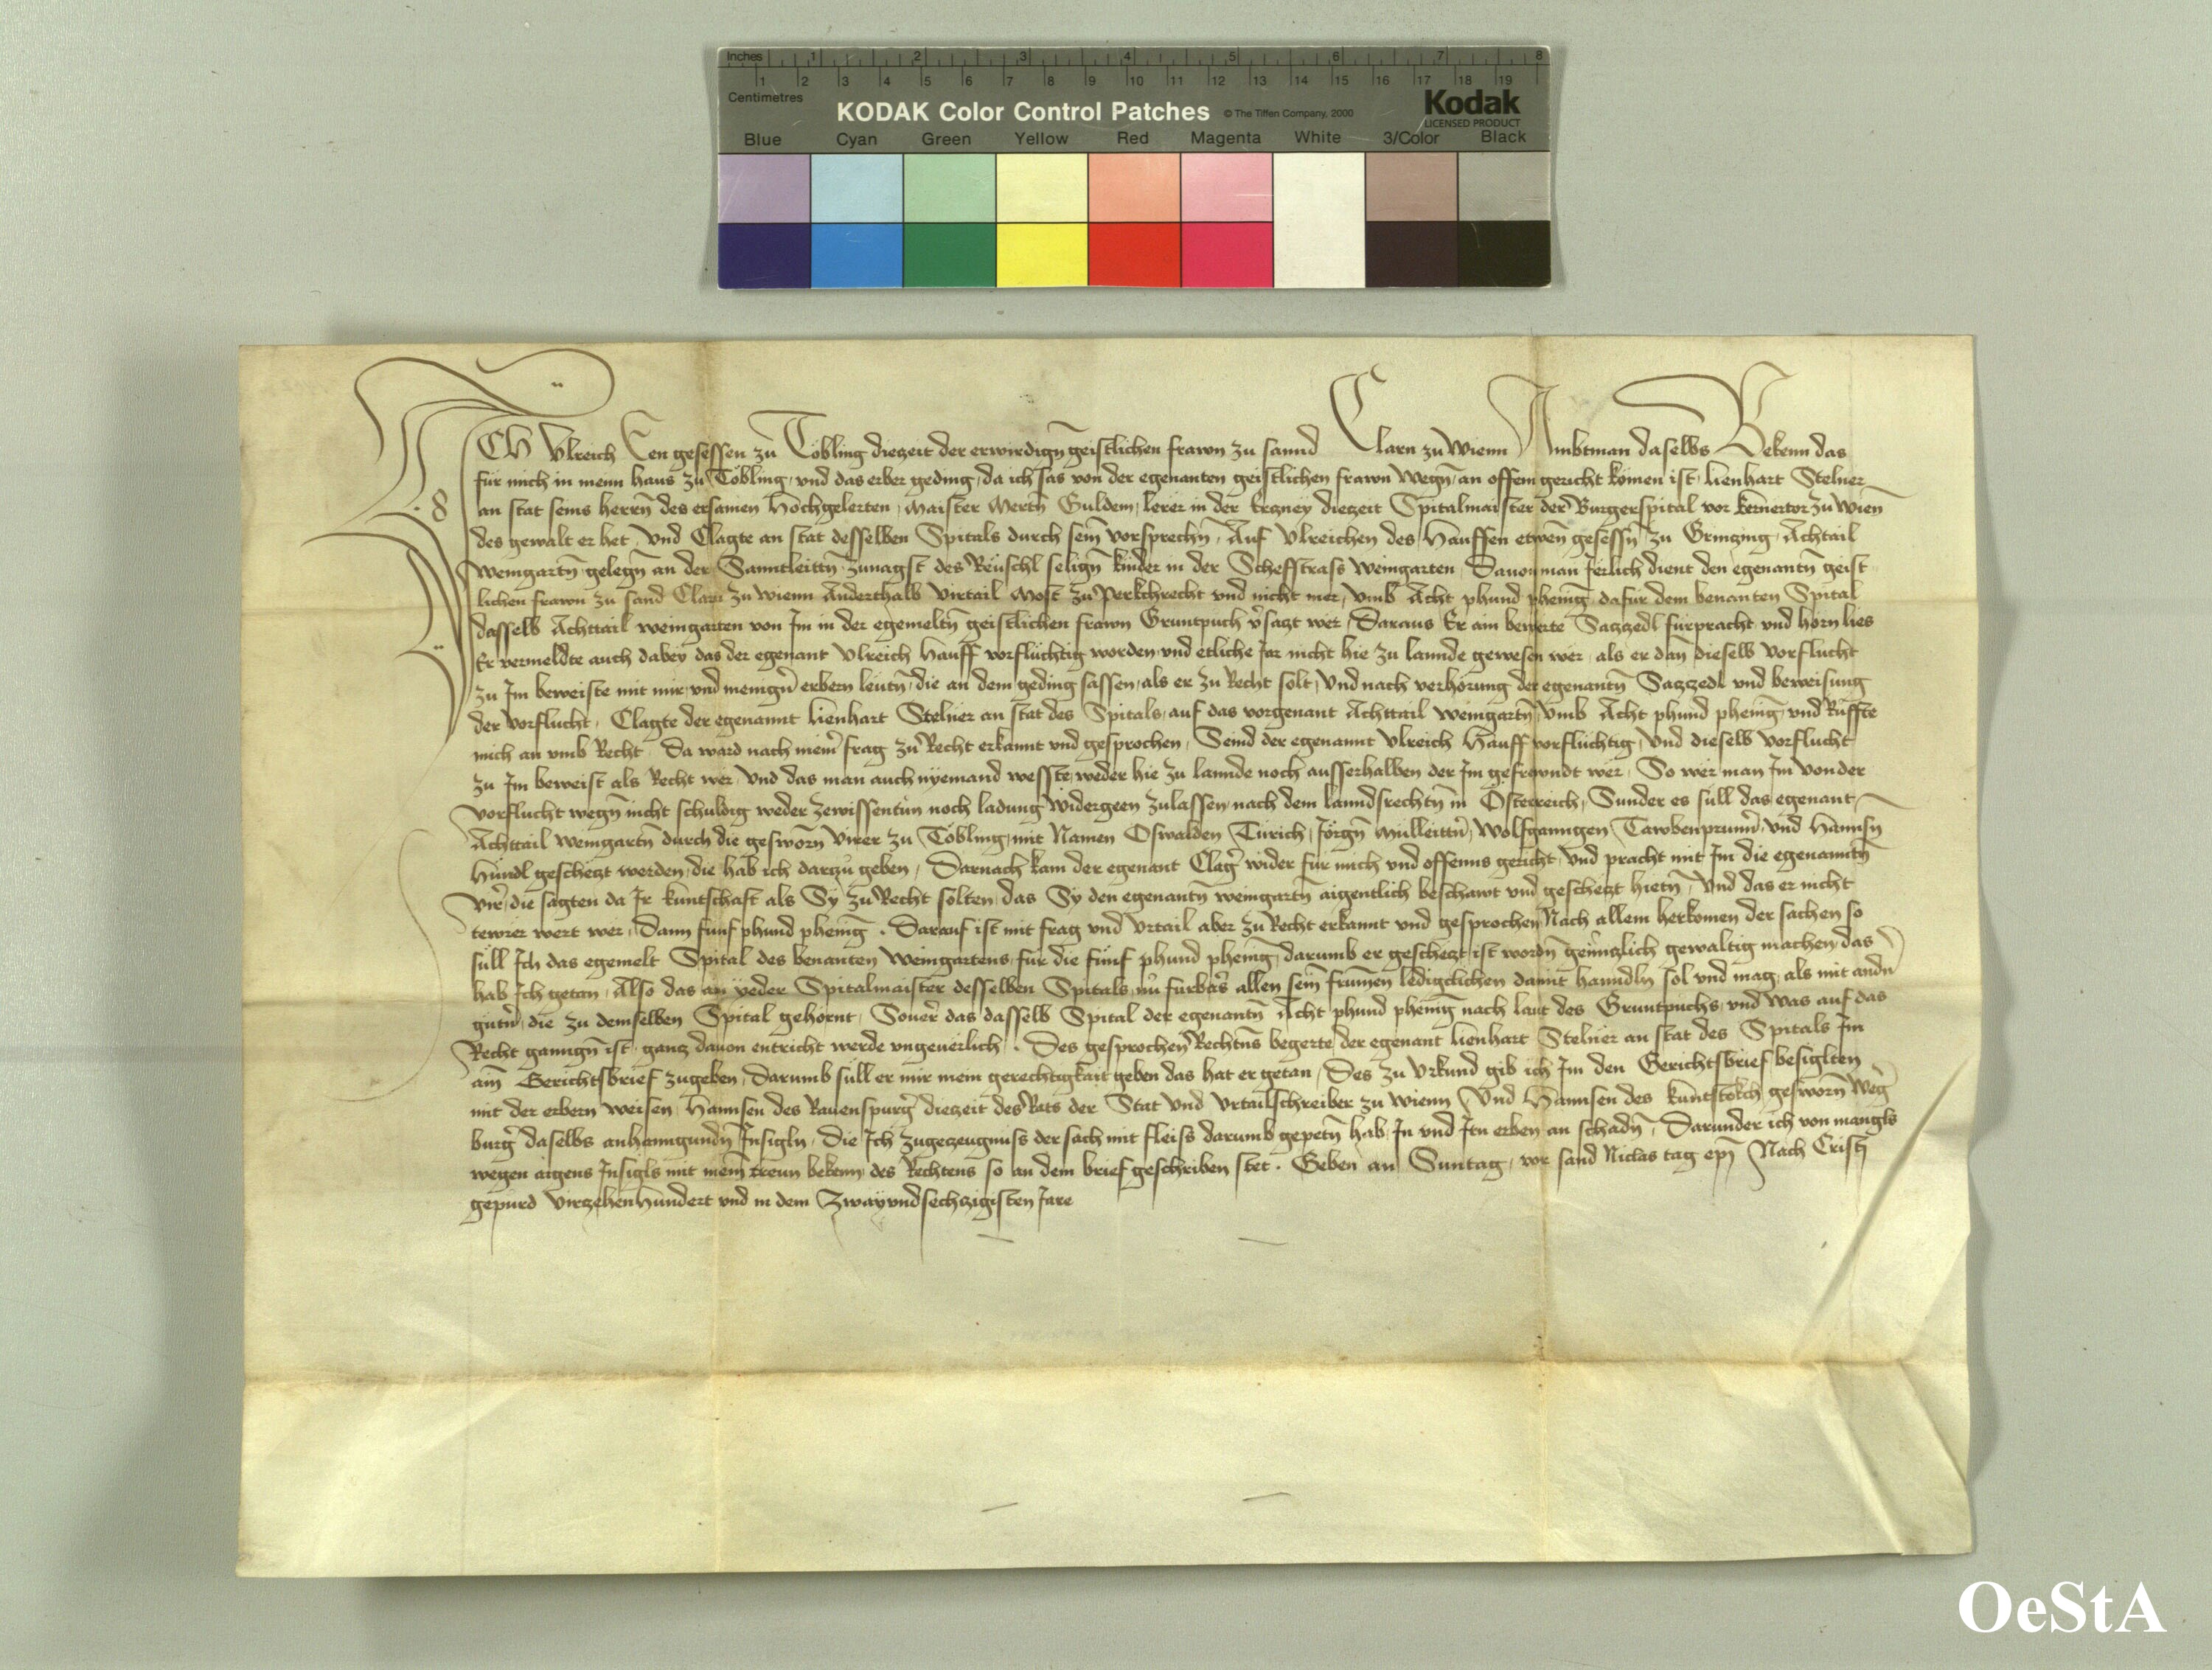 Inches 1 2 3 4 5 6 7 8
1 2 3 4 5 6 7 8 9 10 11 12 13 14 15 16 17 18 19
Centimetres
KODAK Color Control Patches © The Tiffen Company, 2000 Kodak
LICENSED PRODUCT
Blue Cyan Green Yellow Red Magenta White 3/Color Black
ICH Ulreich gesessen zu Tobling diezeit der erwirdign geistlichen frawn zu sannd Clarn zu Wienn Ambtman daselbs Bekenn das
für mich in meim haus zu Töbling, und das erber geding, da ich sas von der egenanten geistlichen frawn wegn, an offem gericht komen ist, Lienhart Stelner
an stat seins herrn des ersamen Hochgelerten, Maister Mertn Guldem, lerer in der Erczney diezeit Spitalmaister der Burgerspital vor kernertor zu Wien
des gewalt er het, und Clagte an stat desselben Spitals durch sein vorsprechn, Auf Ulreichen des Hauffen etwen gesessn zu Grinczing, Achtail
weingartn gelegn an der Sanntleittn zunagst des Reuschl selign kinder in der Scheffstrass weingarten, Dauon man Jerlich dient den egenantn geist
lichen frawn zu sand Clarn zu wienn Anderthalb virtail Most zu Perkchrecht und nicht mer, umb Acht phund phenig dafür dem benanten Spital
dasselb Achttail weingarten von Im in der egemeltn geistlichen frawn Gruntpuch v̉saczt wer, Daraus Er ain bewerte Saczzedl furpracht und horn lies
Er vermeldte auch dabey das der egenant Ulreich Hauff vorflüchtig worden und etliche Jar nicht hie zu lannde gewesen wer, als er dan dieselb vorflucht
zu Im beweiste mit mir und menign erbern leutn, die an dem geding sassen, als er zu Recht solt, Und nach verhorung der egenantn Saczzedl und beweisung
der vorflucht, Clagte der egenannt Lienhart Stelner an stat des Spitals, auf das vorgenant Achttail weingartn, umb Acht phund phenig und Ruffte
mich an umb Recht Da ward nach meim frag zu Recht erkannt und gesprochen, Seind der egenannt Ulreich Hauff vorflüchtig, Und dieselb vorflucht
zu Im beweist als Recht wer, Und das man auch nyemand wesste weder hie zu lannde noch ausserhalben der Im gefrewndt wer, So wer man Im von der
vorflucht wegn nicht schuldig weder zewissentun noch ladung widergeen zulassen, nach dem lanndsrechtn in Osterreich, Sunder es süll das egenant
Achttail weingartn durch die gesworn virer zu Töbling, mit Namen Oswalden Türich, Jörgn Mulleittn̉, Wolfganngen Tawbenprunn̉, und Hannsn
Hündl geschezt werden, die hab ich darczu geben, Darnach kam der egenant Clag̉ wider für mich und offenns gericht, Und pracht mit Im die egenanntn
vir̉, die sagten da Ir kuntschaft als Sy zu Recht solten, das Sy den egenantn weingartn aigentlich beschawt und geschezt hietn, Und das er nicht
tewrer wert wer, Dann funf phund phenig. Darauf ist mit frag und urtail aber zu Recht erkannt und gesprochen Nach allem herkomen der sachen so
süll Ich das egemelt Spital des benanten Weingartens, für die fünf phund phenig, darumb er geschezt ist wordn genczlich gewaltig machen, das
hab Ich getan, Also das ain yeder Spitalmaister desselben Spitals nu furbas̉ allen sein frumen ledigclichen damit hanndln sol und mag, als mit andn̉
gutn̉, die zu demselben Spital gehornt, Souer̉ das dasselb Spital der egenantn Acht phund phenig nach laut des Gruntpuchs, und was auf das
Recht ganngn ist, gancz dauon entricht werde ungeuerlich. Des gesprochen Rechtns begerte der egenant Lienhart Stelner an stat des Spitals Im
ain Gerichtsbrief zugeben, Darumb süll er mir mein gerechtigkait geben das hat er getan, Des zu Urkund gib ich Im den Gerichtsbrief besiglten
mit der erbern weisen Hannsen des Rauenspurg̉ diezeit des Rats der Stat und Urtailschreiber zu wienn Und Hannsen des kuntstokch gesworn weg̉
burg̉ daselbs anhanngundn Insigln, Die Ich zugeczeugnuss der sach mit fleiss darumb gepetn hab, In und Irn erben an schadn, Darunder ich von mangls
wegen aigens Insigls mit meim treun bekenn, des Rechtens so an dem brief geschriben stet. Geben an Suntag, vor sand Niclas tag Nach Cristi
gepurd virczehenhundert und in dem Zwayundsechczigisten Jare
OeStA